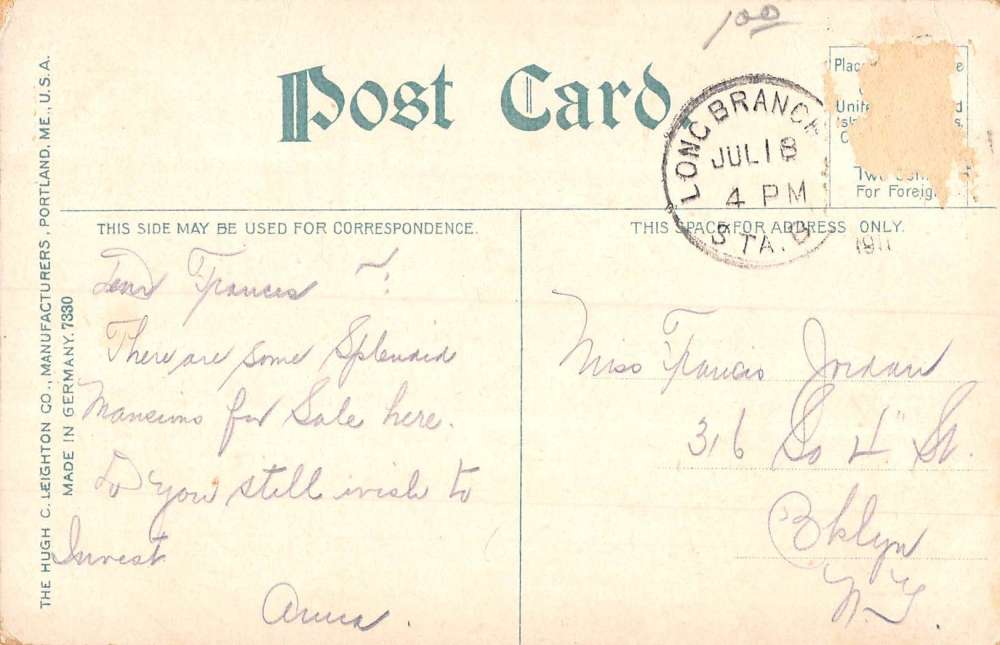 100
Post Card
LONG BRANCH
JUL 18
4 PM
STA. B
1911
Plac e
Unit d
Isl s.
C
Two Cen
For Foreig
THE HUGH C. LEIGHTON CO., MANUFACTURERS, PORTLAND, ME., U.S.A.
MADE IN GERMANY. 7330
THIS SIDE MAY BE USED FOR CORRESPONDENCE.
Dear Frances :
There are some Splendid
Mansions for Sale here.
Do you still wish to
Invest
Anna
THIS SPACE FOR ADDRESS ONLY.
Miss Francis Jordan
316 So 4" St.
Bklyn
N.Y.